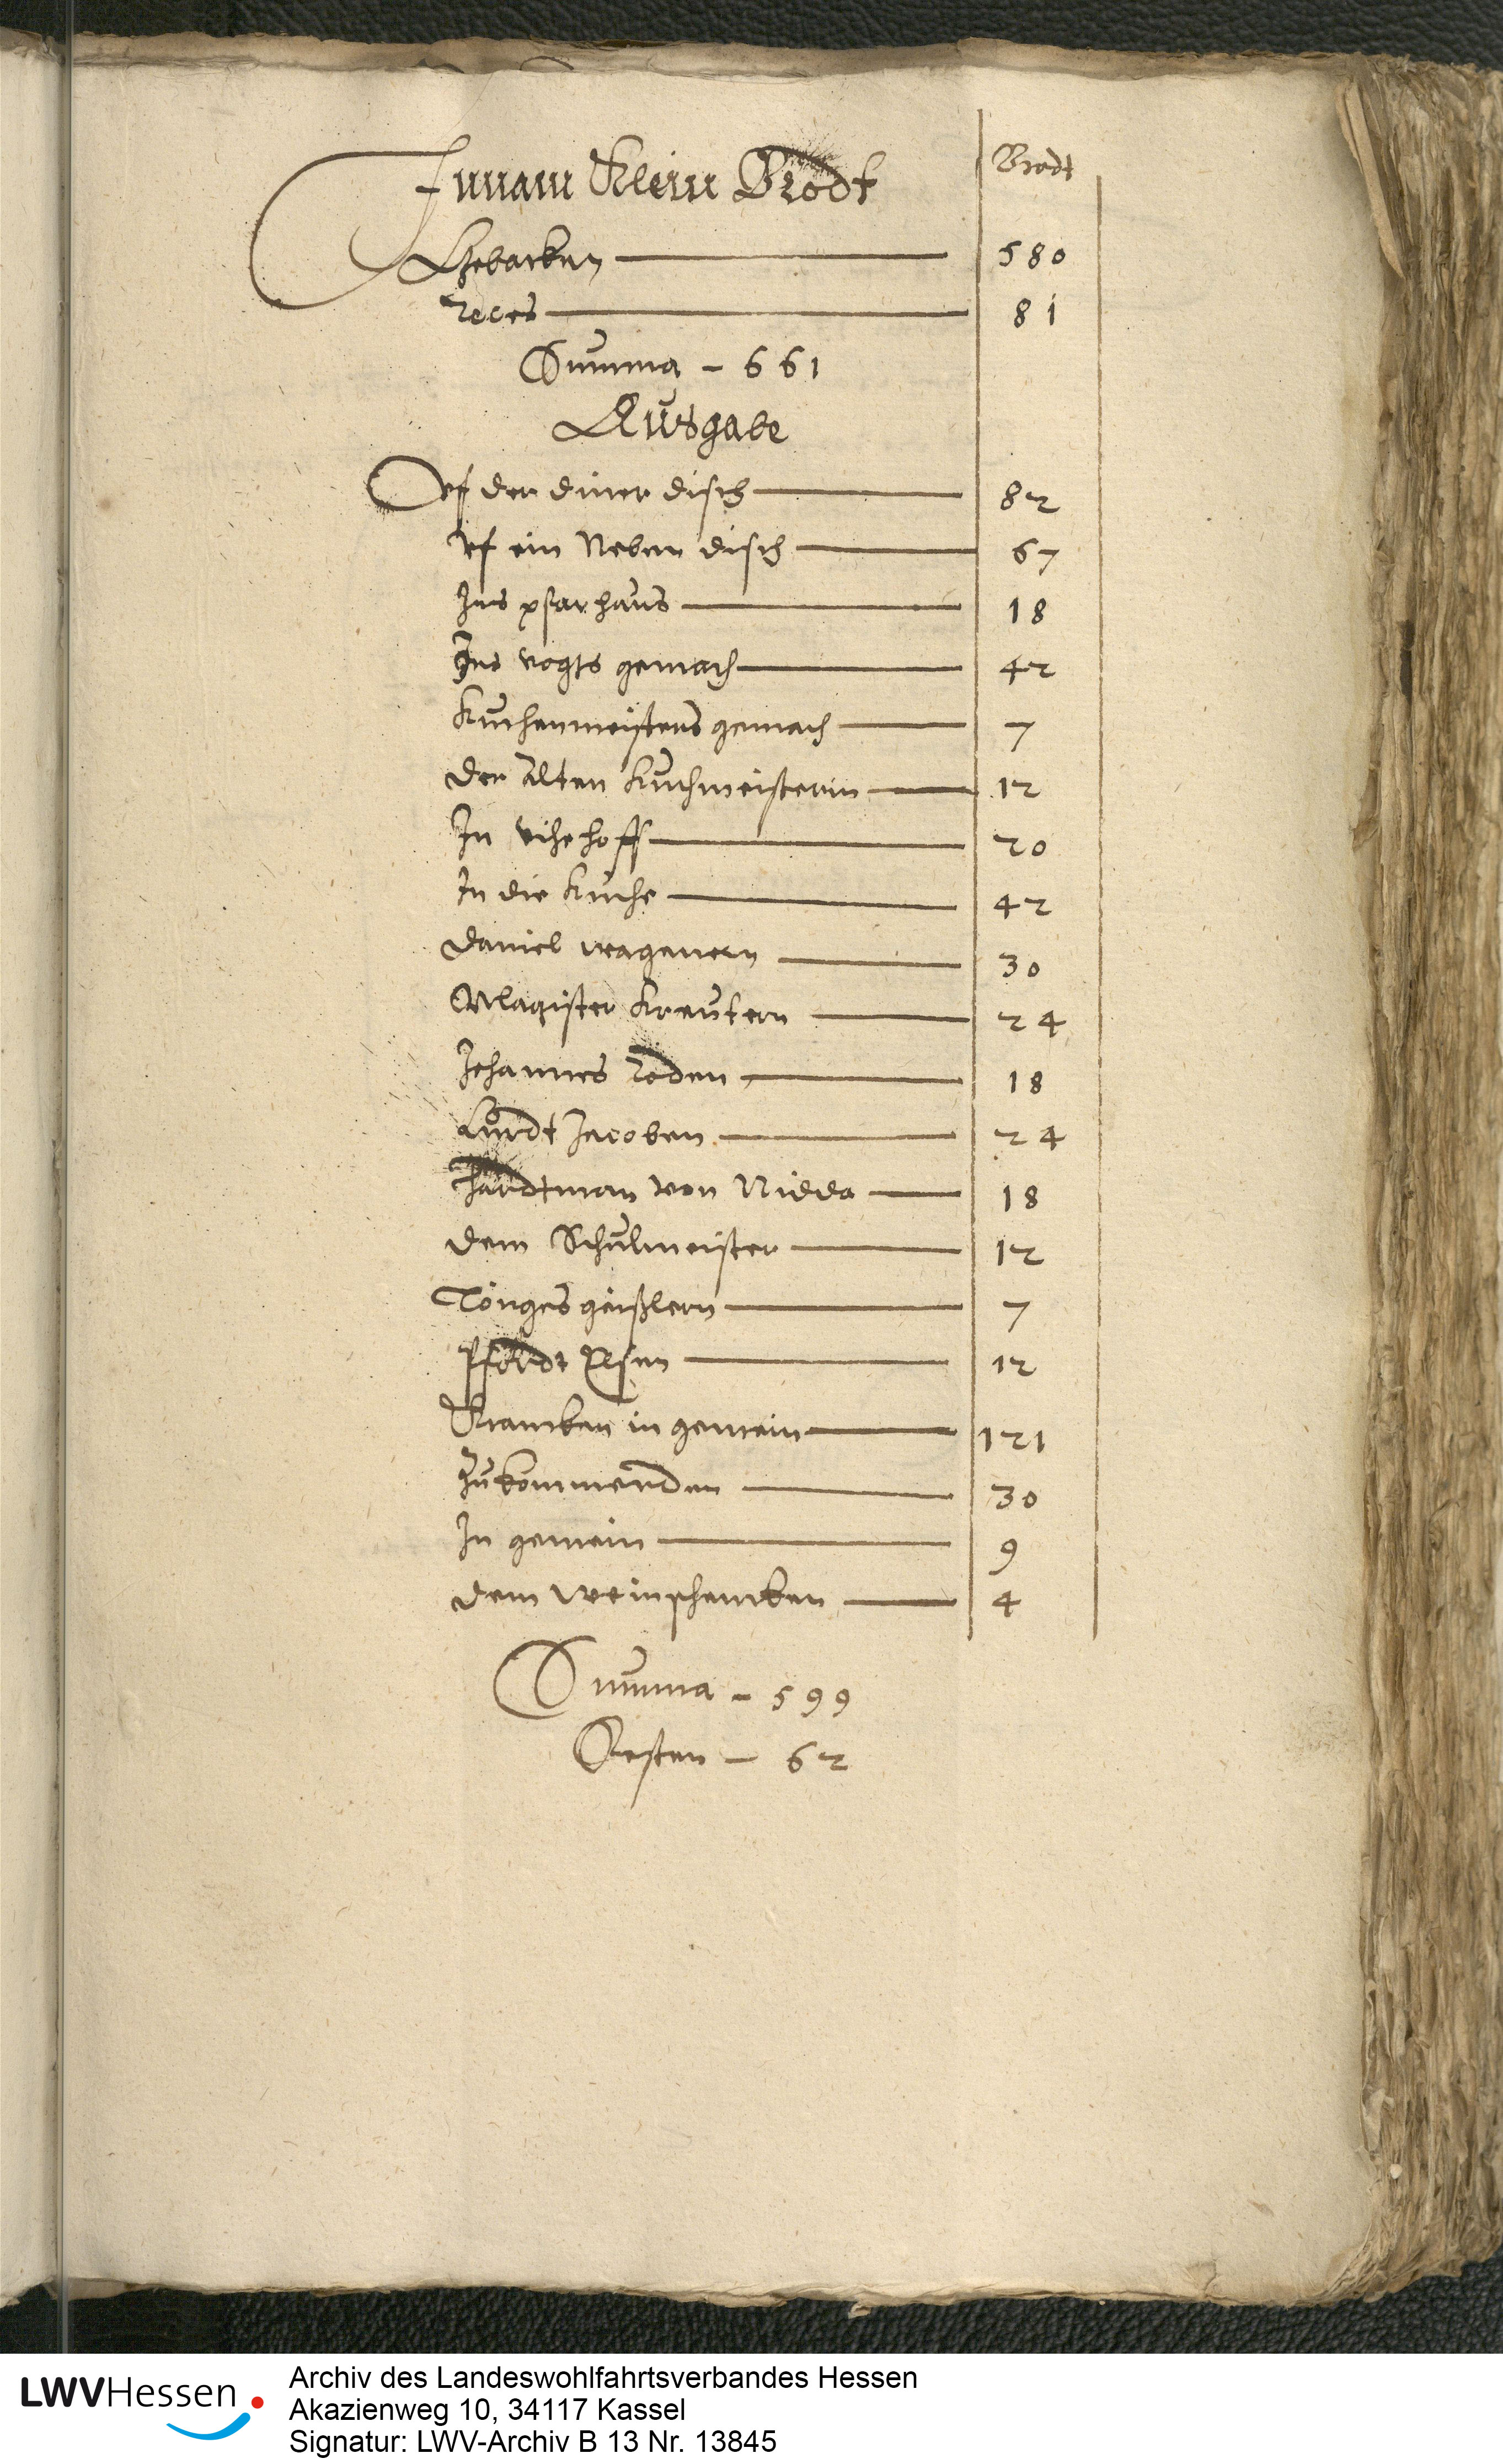 Innam Klein Brodt
Brodt
Gebacken 580
Reces 81
Summa - 661
Ausgabe
Vf der diner disch 82
Vf ein Neben disch 67
Ins pfarhaus 18
Ins vogts gemach 42
Kuchenmeisters gemach 7
der Alten Kuchmeisterin 12
In vihehoff 20
In die Kuche 42
Daniel wagenern 30
Magister Kreutern 24
Johannes Roden 18
Curdt Jacoben 24
Hardtman von Nidda 18
dem Schulmeister 12
Tönges geißlern 7
Pfordt Elsen 12
Krancken in gemein 121
Zukommenden 30
In gemein 9
dem weinschencken 4
Summa - 599
Resten - 62
LWVHessen
Archiv des Landeswohlfahrtsverbandes Hessen
Akazienweg 10, 34117 Kassel
Signatur: LWV-Archiv B 13 Nr. 13845